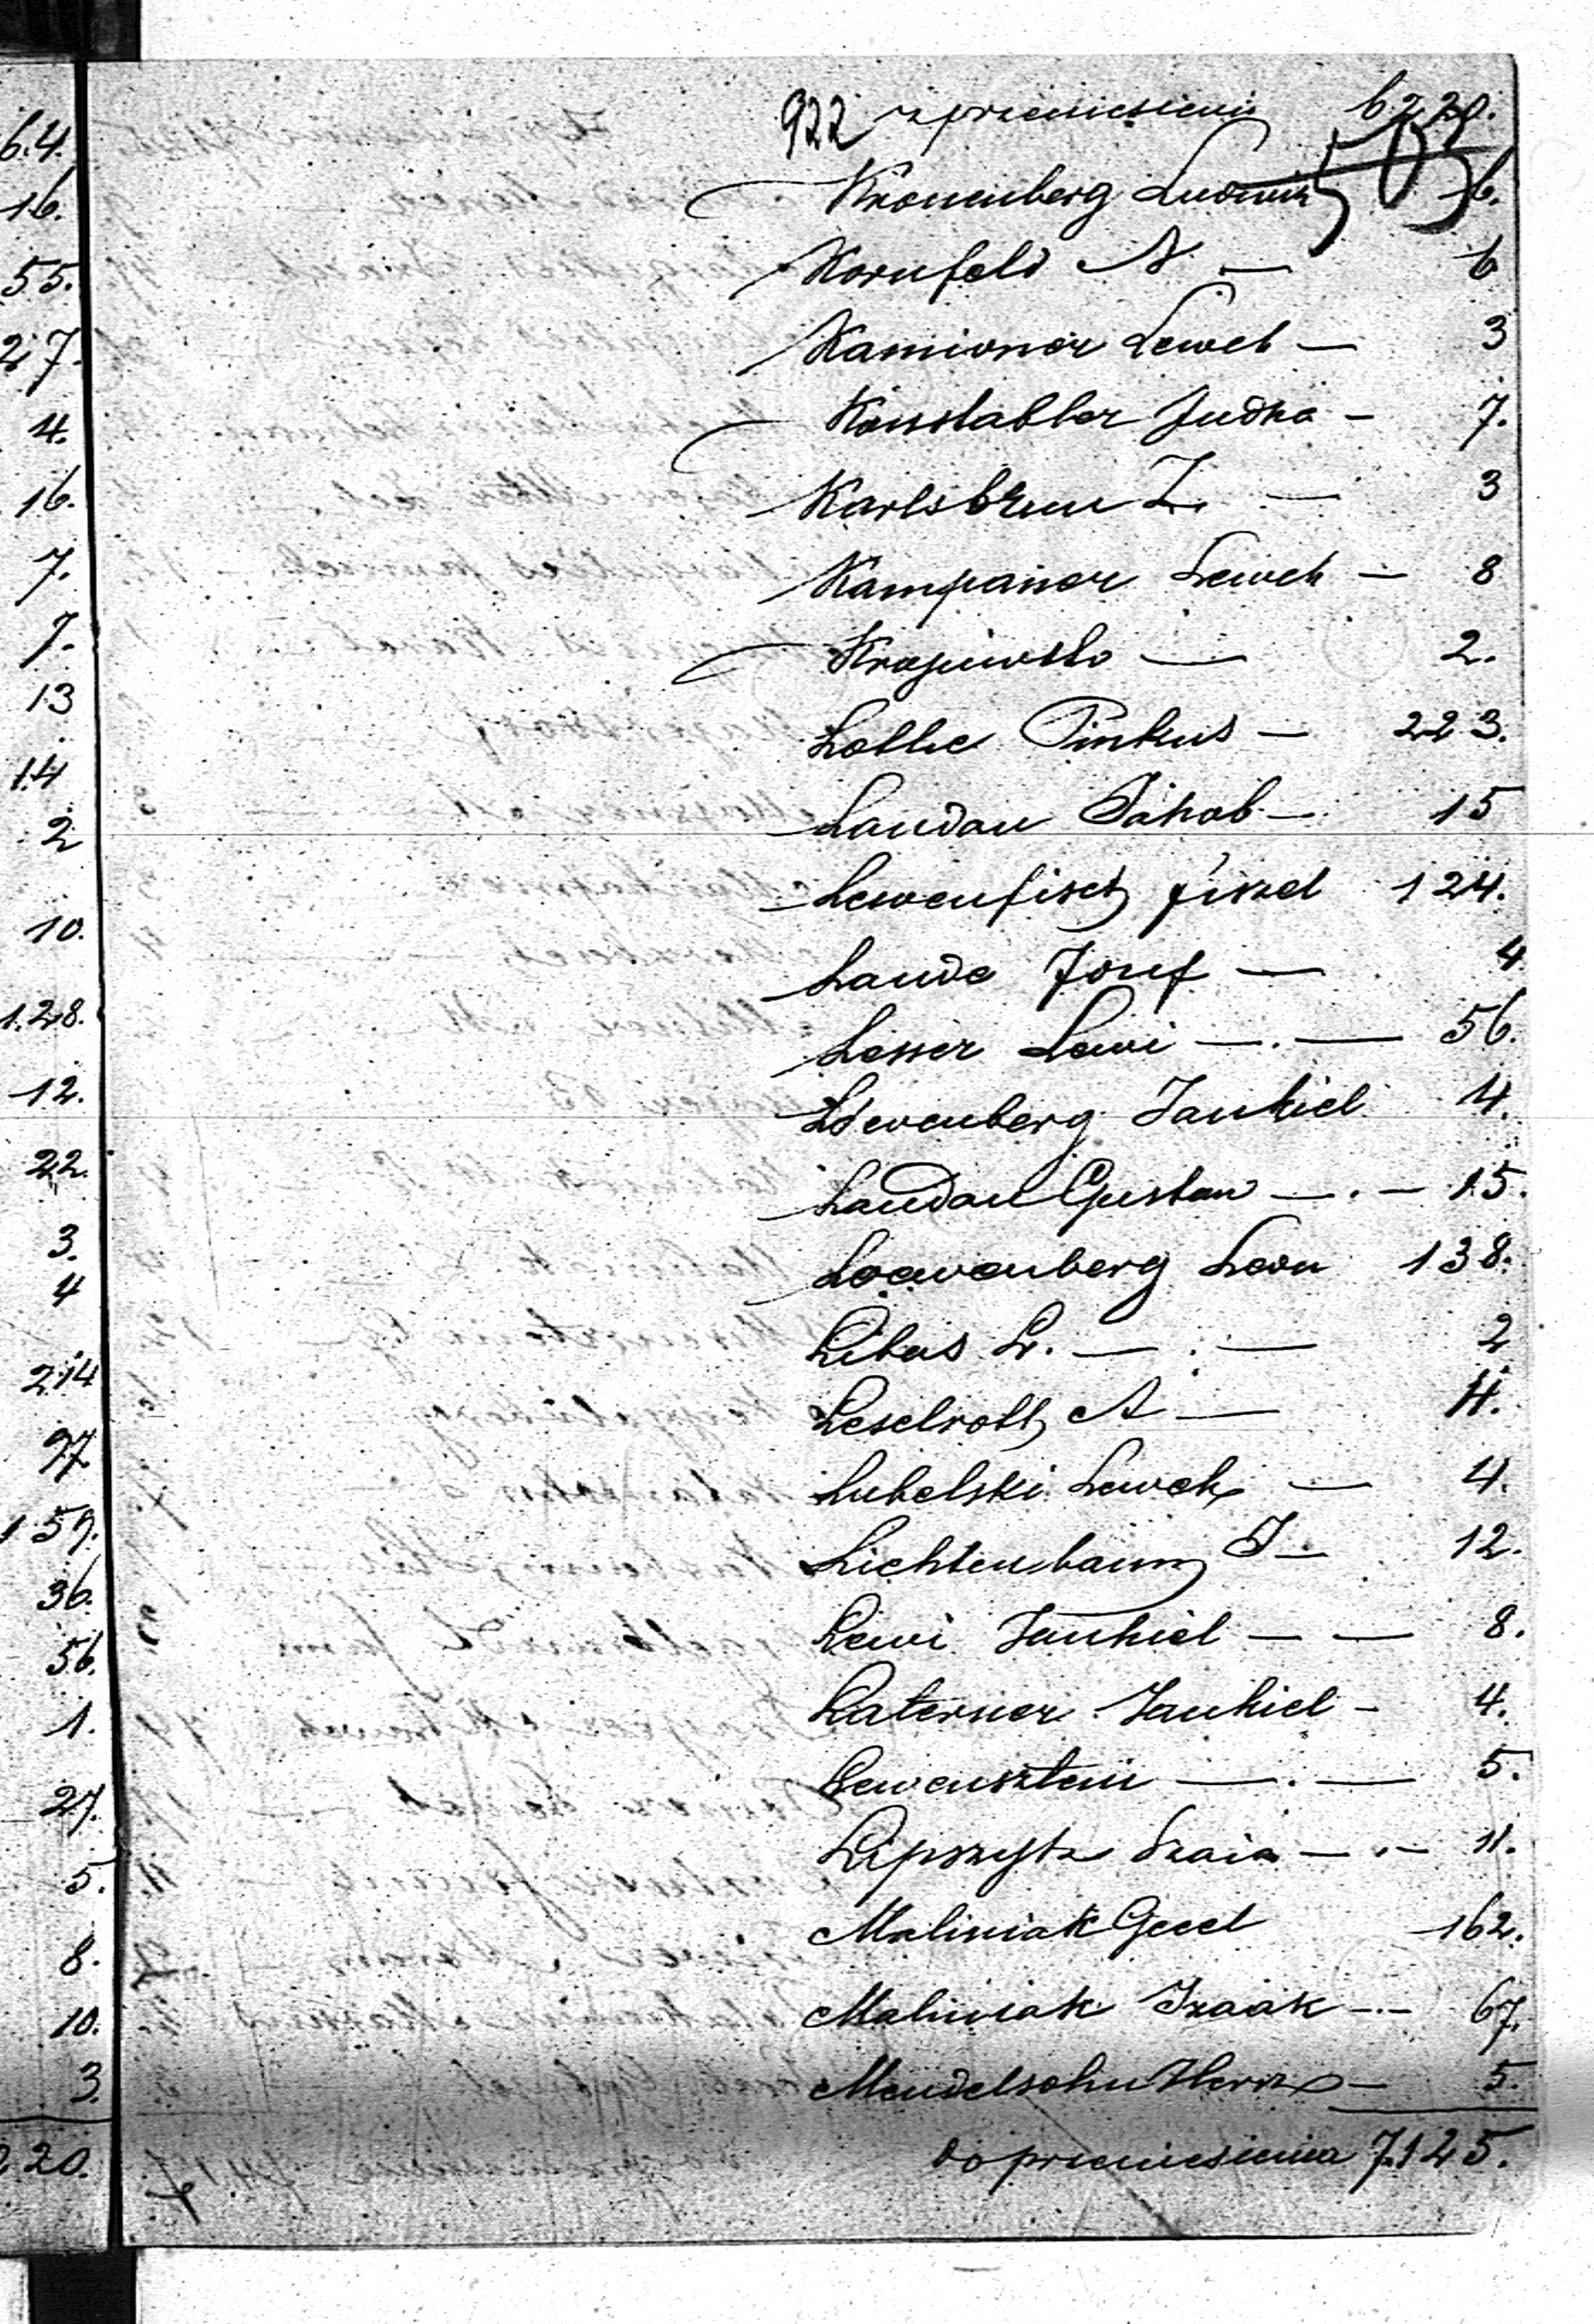 64.
16.
55.
27.
4.
16.
7.
7.
13
14
2
10.
128.
12.
22.
3.
4
214
97
159.
36.
56.
1.
27.
5.
8.
10.
3.
220.
922 z przeniesienia 6220.
503
Kronenberg Ludwik 6.
Kornfeld N. — 6
Kamioner Lewek — 3
Konstabler Judka — 7.
Karlsbrun L. — 3
Kampaner Lewek — 8
Krajewski — 2.
Lothe Pinkus — 223.
Landau Jakob — 15
Lewenfisch Fiszel 124.
Lande Josef — 4
Lesser Lewi — . — 56.
Löwenberg Jankiel 4.
Landau Gustaw — . — 15.
Loewenberg Leon 138.
Libas L. — . — 2
Leselroth A — 11.
Lubelski Lewek — 4.
Lichtenbaum J — 12.
Lewi Jankiel — — 8.
Laterner Jankiel — 4.
Lewensztein — . — 5.
Lipszytz Szaia — . — 11.
Maliniak Gecel 162.
Maliniak Izaak — . — 67.
Mendelsohn Hersz — 5.
do przeniesienia 7125.